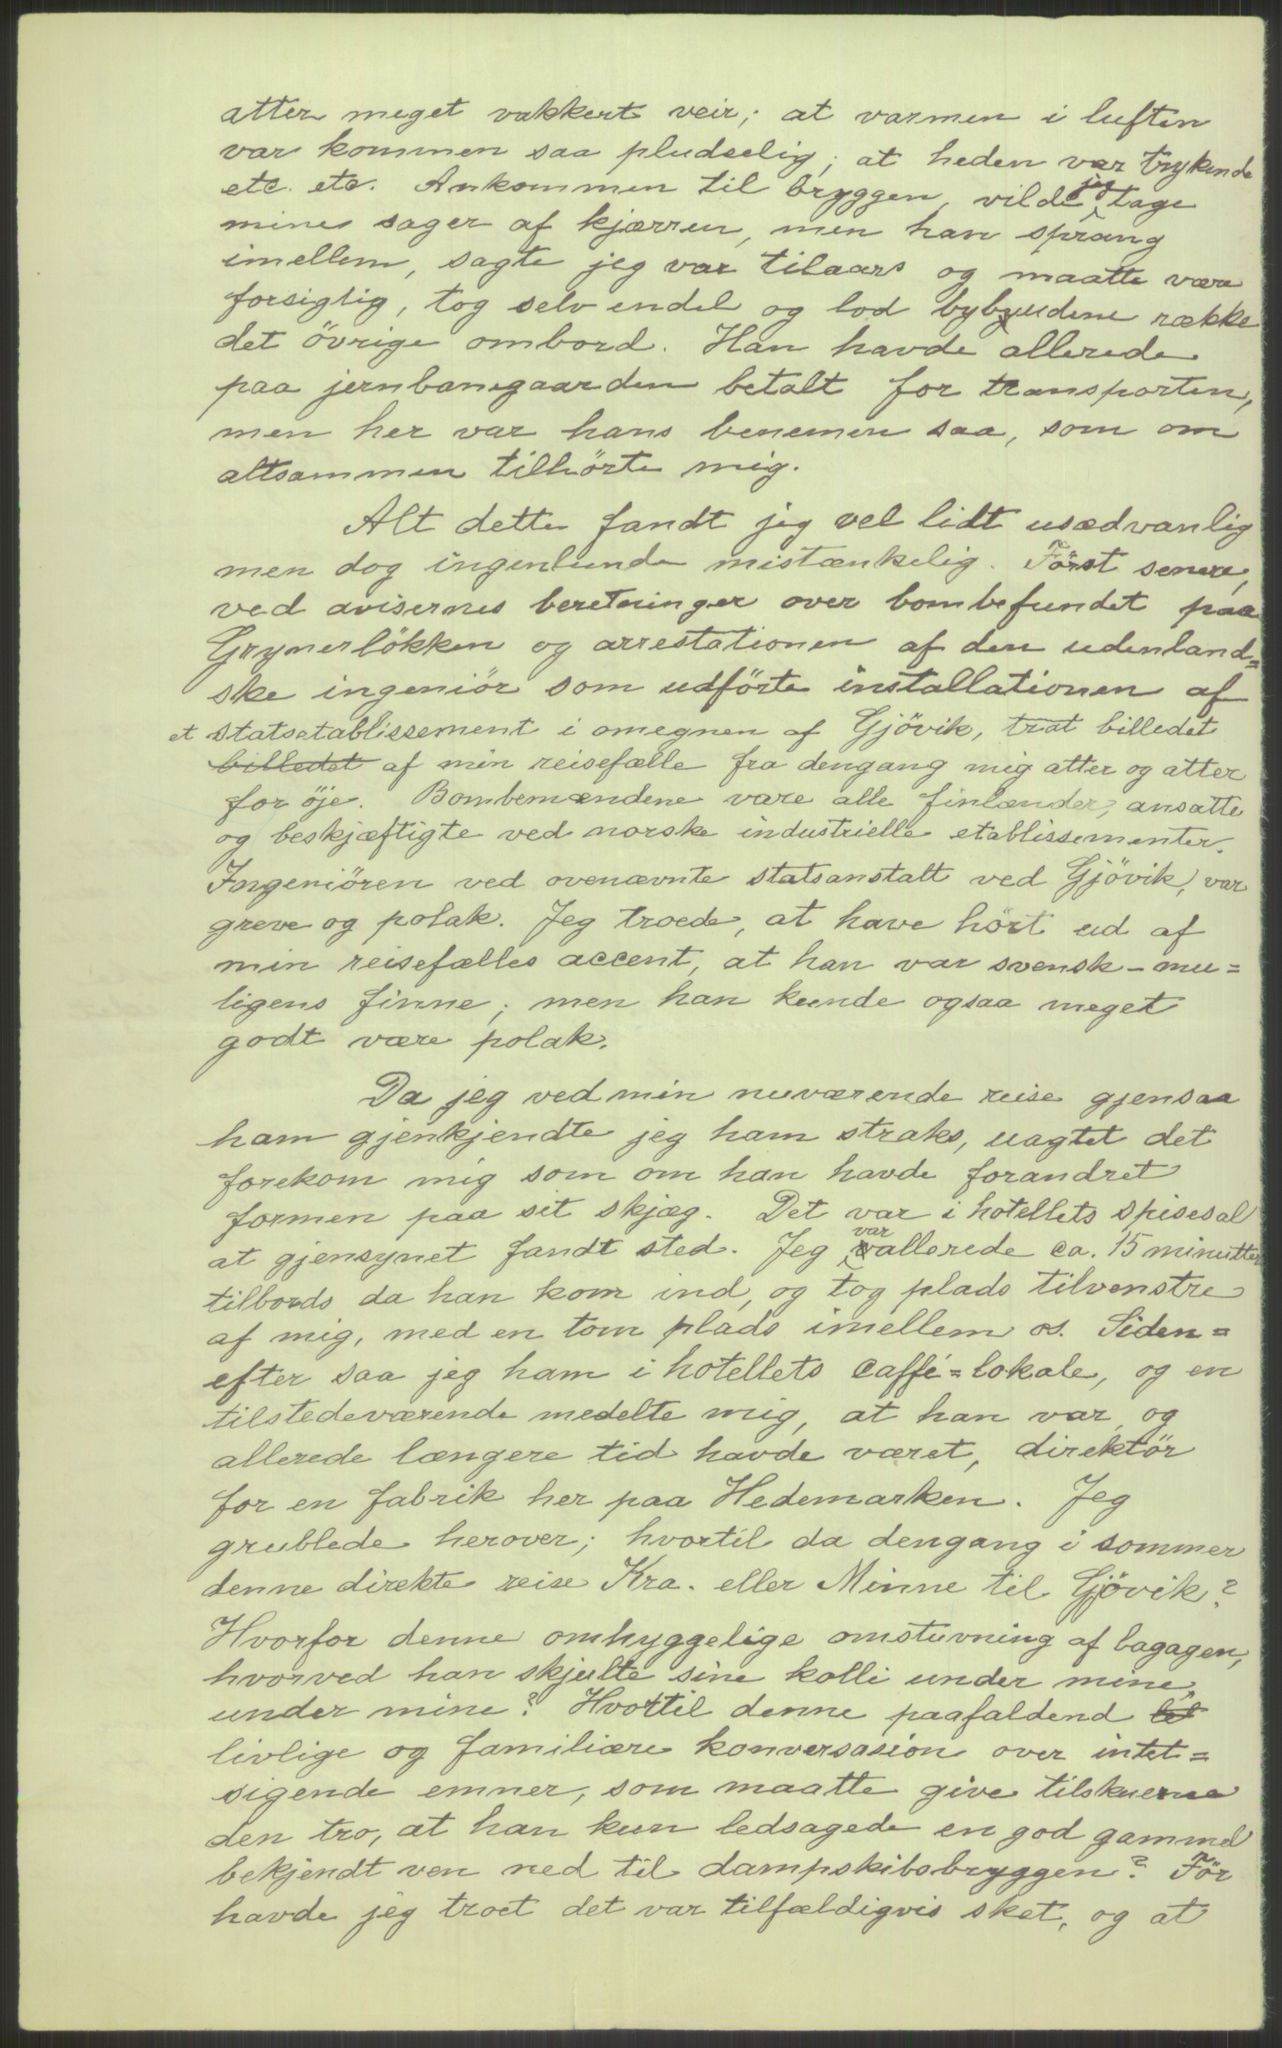 atter meget vakkert veir; at varmen i luften
var kommen saa pludselig; at heden var trykende
etc. etc. Ankommen til bryggen, vilde jeg tage
mine sager af kjærren, men han sprang
imellem, sagte jeg var tilaars og maatte være
forsigtig, tog selv endel og lod bybudene række
det övrige ombord. Han havde allerede
paa jernbanegaarden betalt for transporten,
men her var hans benemen saa, som om
altsammen tilhörte mig.
Alt dette fandt jeg vel lidt usædvanlig
men dog ingenlunde mistænkelig. Först senere,
ved avisernes beretninger over bombefundet paa
Grynerlökken og arrestationen af den udenland=
ske ingeniör som udförte installationen af
et statsetablissement i omegnen af Gjövik, trat billedet
billedet af min reisefælle fra dengang mig atter og atter
for öje. Bombemændene vare alle finlænder, ansatte
og beskjæftigte ved norske industrielle etablissementer.
Ingeniören ved ovenævnte statsanstalt ved Gjövik, var
greve og polak. Jeg troede, at have hört ud af
min reisefælles accent, at han var svensk - mu=
ligens finne; men han kunde ogsaa meget
godt være polak.
Da jeg ved min nuværende reise gjensaa
ham gjenkjendte jeg ham straks, uagtet det
forekom mig som om han havde forandret
formen paa sit skjæg. Det var i hotellets spisesal
at gjensynet fandt sted. Jeg var allerede ca. 15 minutter
tilbords da han kom ind, og tog plads tilvenstre
af mig, med en tom plads imellem os. Siden=
efter saa jeg ham i hotellets caffé=lokale, og en
tilstedeværende medelte mig, at han var, og
allerede længere tid havde været, direktör
for en fabrik her paa Hedemarken. Jeg
grublede herover; hvortil da dengang i sommer
denne direkte reise Kra. eller Minne til Gjövik?
Hvorfor denne omhyggelige omstuvning af bagagen,
hvorved han skjulte sine kolli under mine,
under mine? Hvortil denne paafaldend
livlige og familiære konversasion over intet=
sigende emner, som maatte give tilskuerne
den tro, at han kun ledsagede en god gammel
bekjendt ven ned til dampskibsbryggen? För
havde jeg troet det var tilfældigvis sket, og at